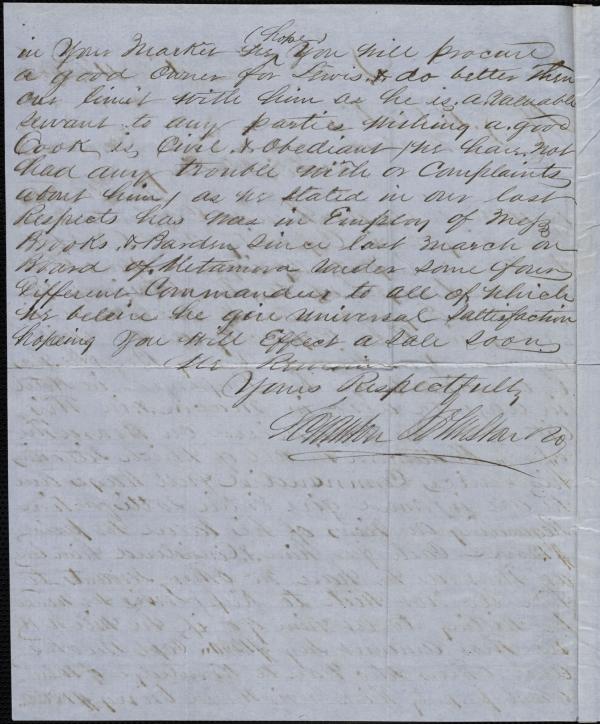 in Your Market We (hope) You will procure
a good owner for Lewis & do better then
our limit with him as he is a valuable
servant to any parties wishing a good
Cook is Civil & Obediant (We have not
had any trouble with or Complaints
about him) as We stated in our last
Respects has was in Employ of Mess
Brooks & Barden Since last March on
Board of Metamora under some four
different Commanders to all of which
We beleive he give universal Satisfaction
hopeing You will Effect a Sale soon
We Remain
Yours Respectfully
Co